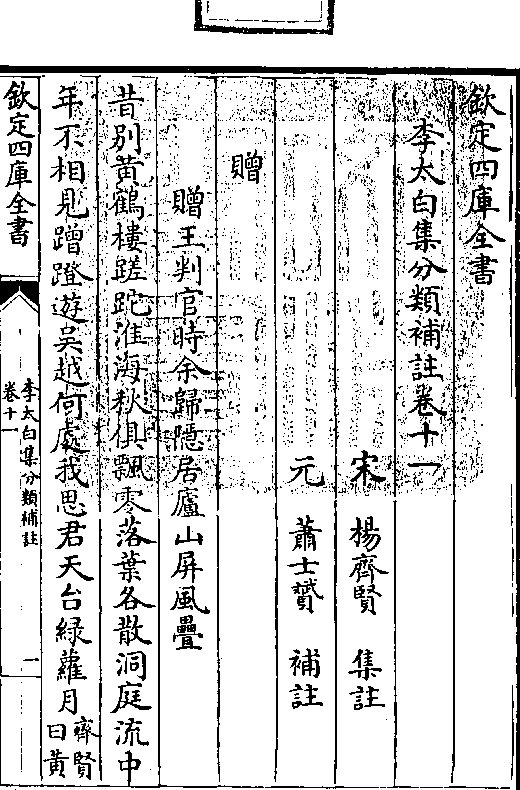 欽定四庫全書
李太白集分類補註卷十一
宋 楊齊賢 集註
元 蕭士贇 補註
贈
贈王判官時余歸隱居廬山屏風疊
昔別黃鶴樓蹉跎淮海秋俱飄零落葉各散洞庭流中
年不相見蹭蹬遊吳越何處我思君天台綠蘿月齊賢
曰黃
欽定四庫全書
李太白集分類補註
卷十一
一